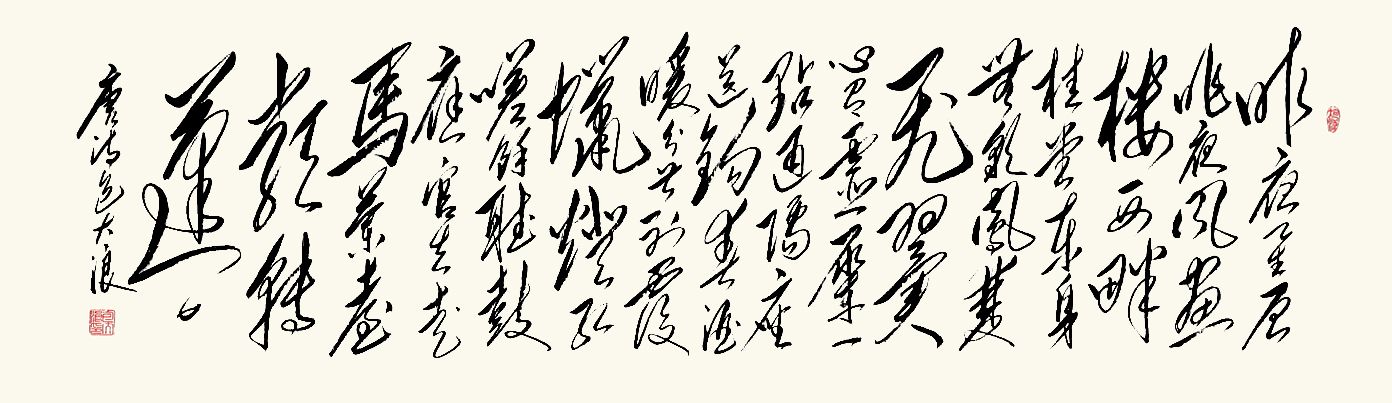 昨夜星辰
昨夜風畫
樓西畔
桂堂東身
無彩鳳雙
飛翼
心有靈犀一
點通隔座
送鉤春酒
暖分曹射覆
蠟燈紅
嗟餘聽鼓
應官去走
馬蘭臺
類轉
蓬
唐詩大浪